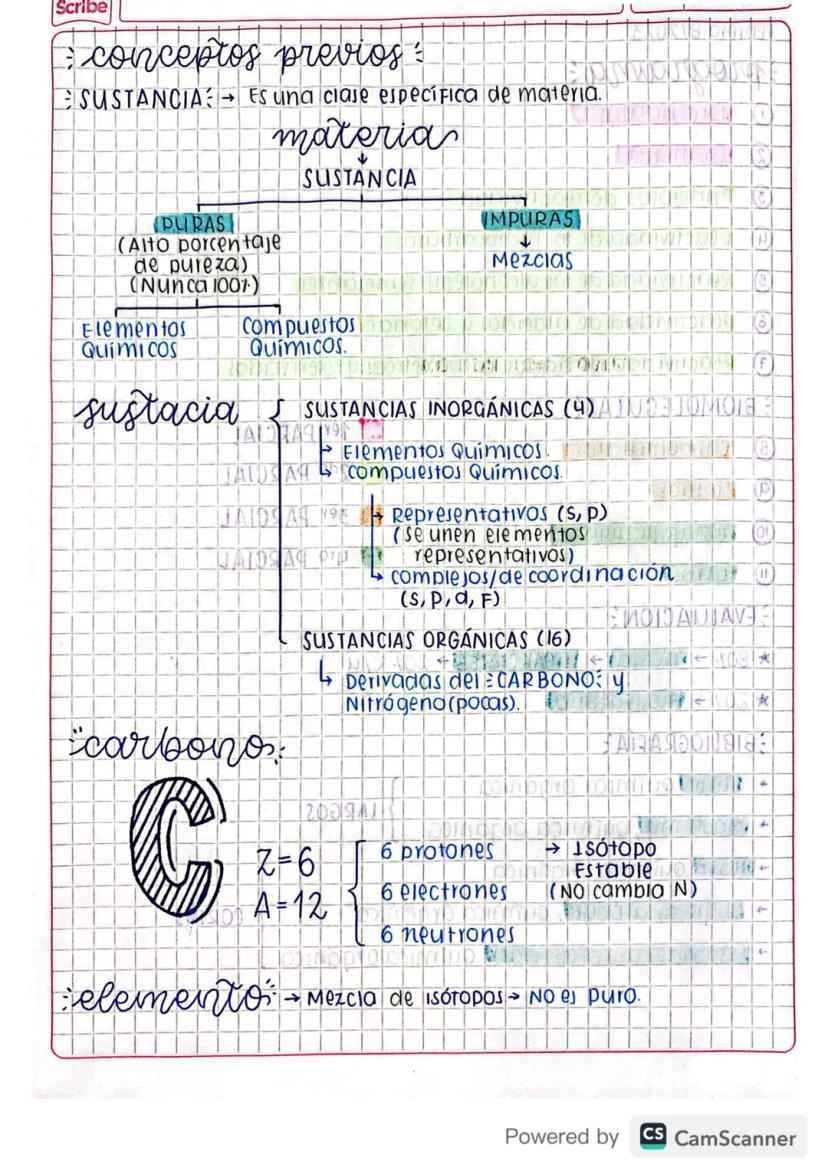 Scribe
conceptos previos
SUSTANCIA → Es una clase específica de materia.
materia
↓
SUSTANCIA
PURAS
(Alto porcentaje
de pureza)
(Nunca 100%)
IMPURAS
↓
Mezclas
Elementos
Químicos
Compuestos
Químicos.
sustacia { SUSTANCIAS INORGÁNICAS (4)
↳ Elementos Químicos.
↳ Compuestos Químicos.
↳ Representativos (s, p)
(se unen elementos
representativos)
↳ Complejos/de coordinación
(s, p, d, F)
SUSTANCIAS ORGÁNICAS (16)
↳ Derivadas del CARBONO y
Nitrógeno (pocas).
carbono:
C
Z=6
A=12
6 protones → Isótopo
Estable
6 electrones (NO cambia N)
6 neutrones
elemento → Mezcla de isótopos → NO es puro.
Powered by CS CamScanner